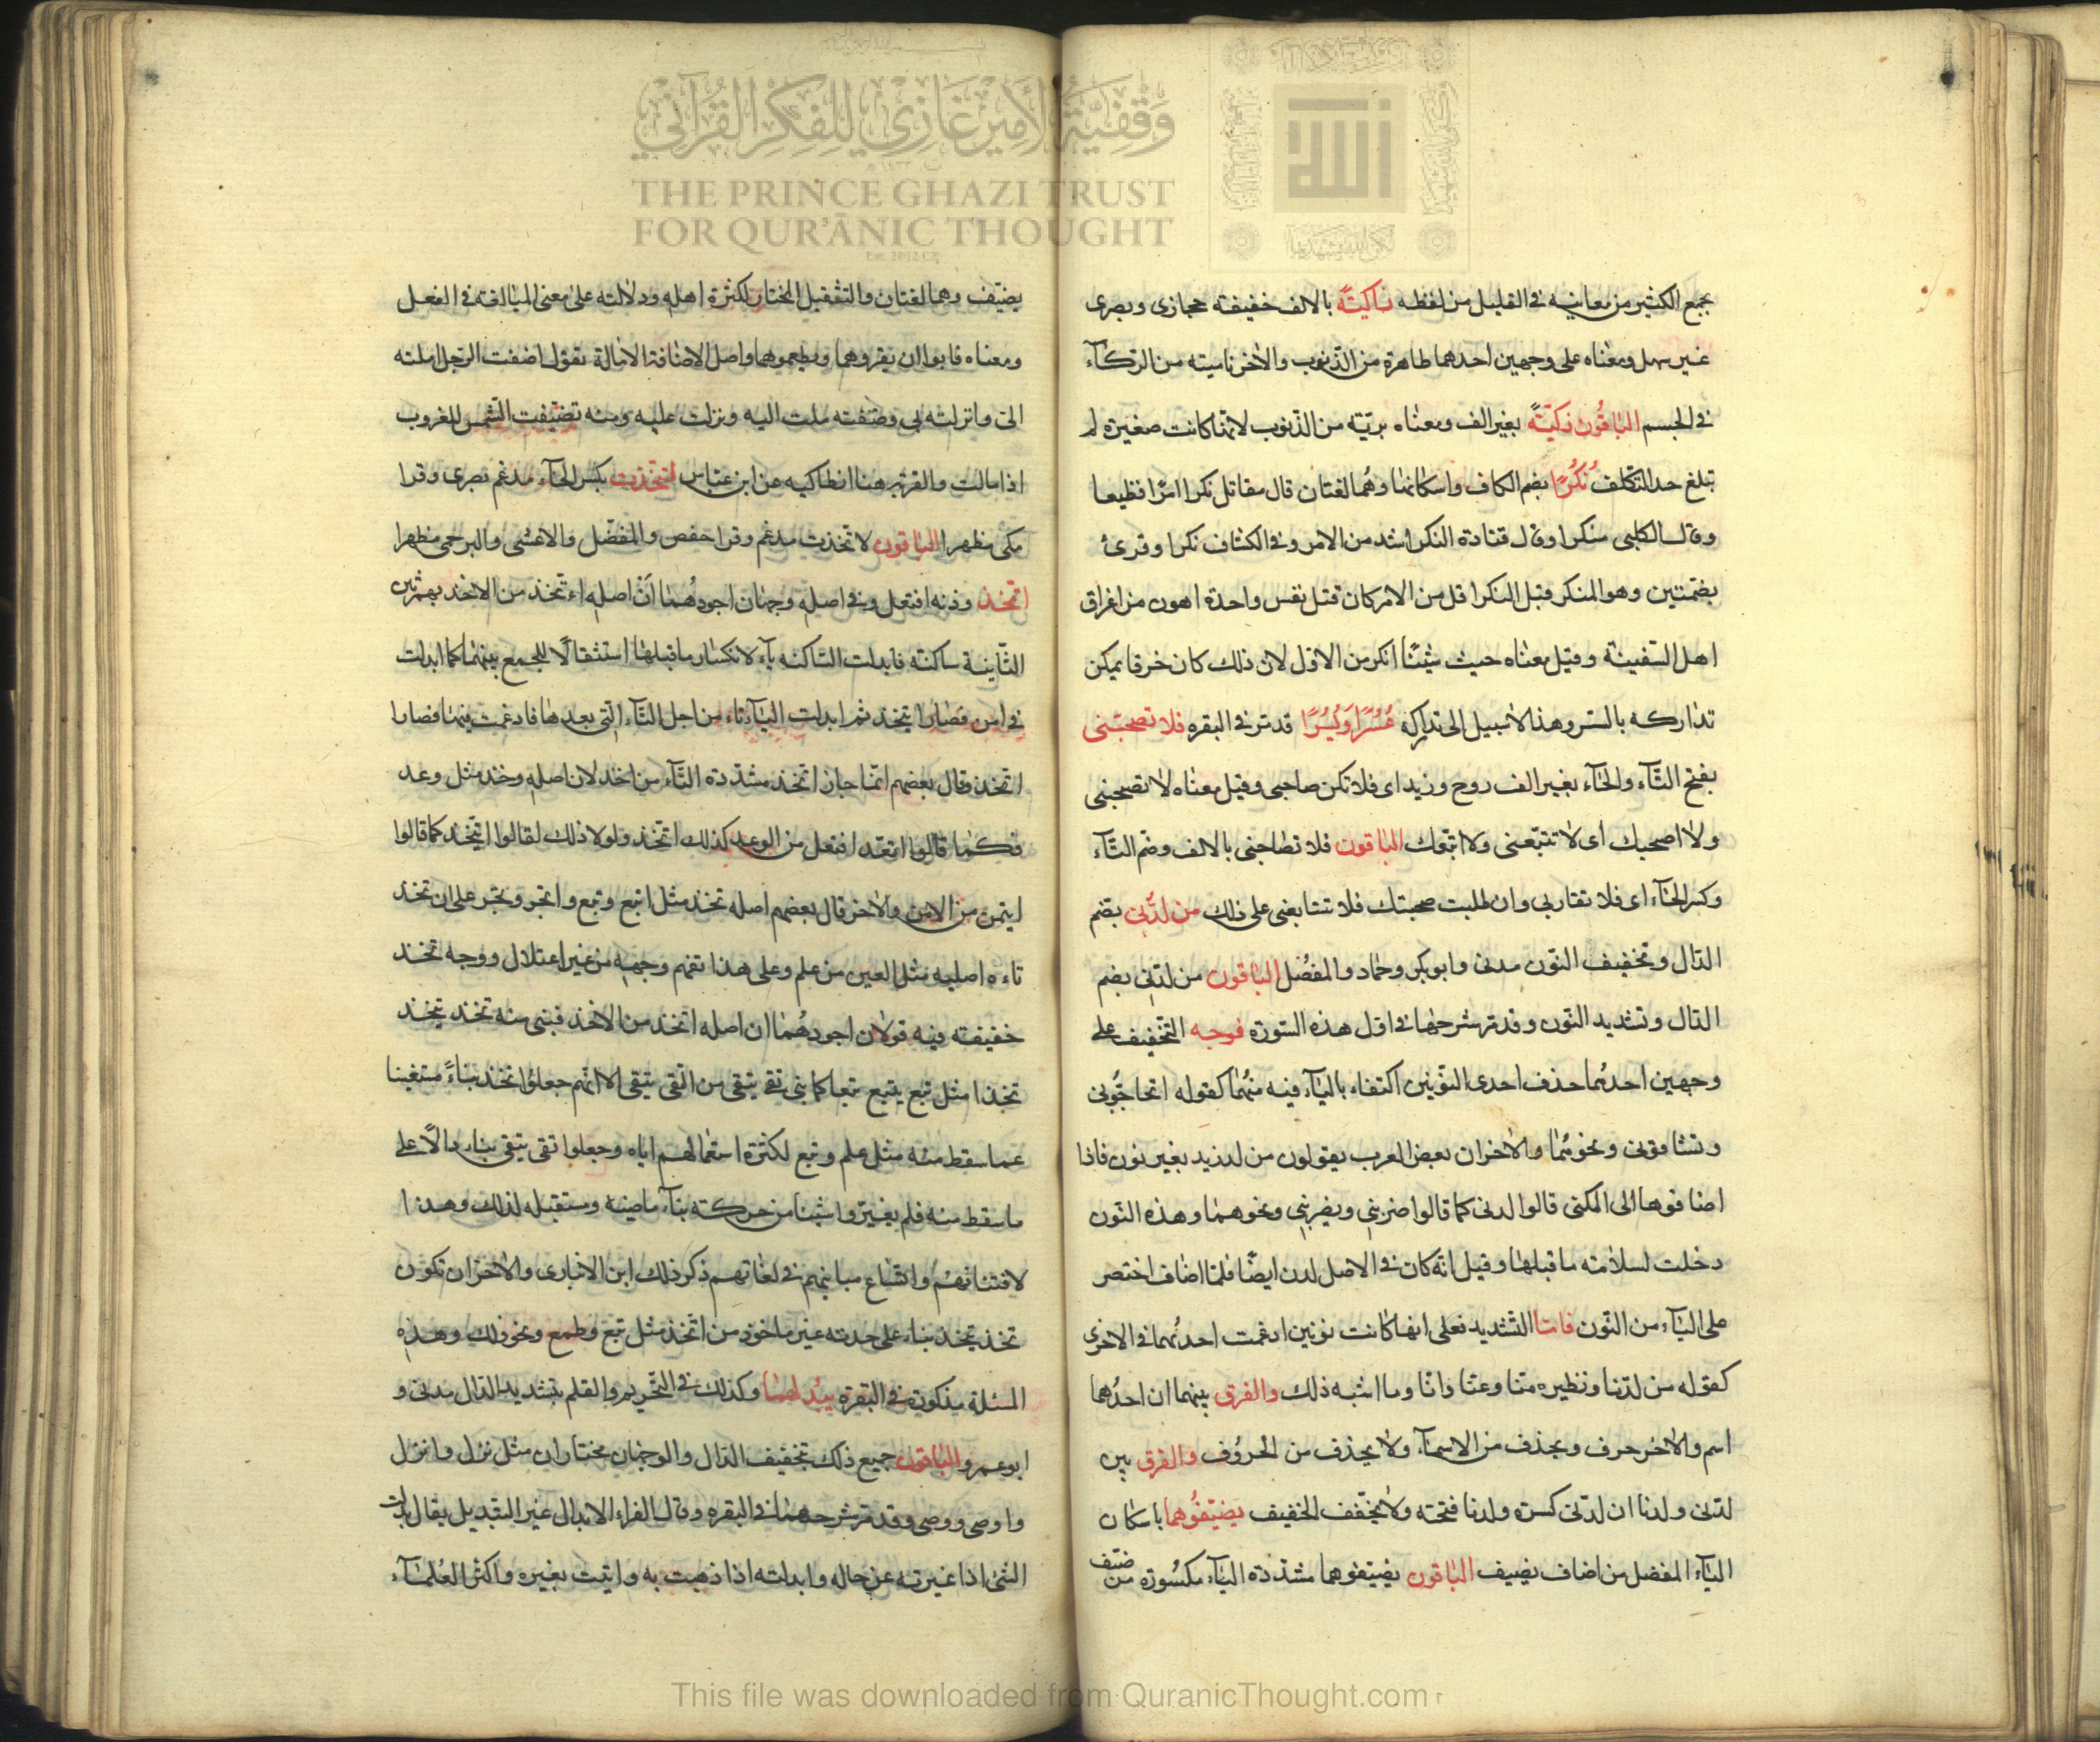 وقفية الأمير غازي للفكر القرآني
THE PRINCE GHAZI TRUST
FOR QUR'ĀNIC THOUGHT
الله
يجمع الكثير من معانيه فى القليل من لفظه زاكيتة بالالف خفيفته حجازى وبصرى
غير سهل ومعناه على وجهين احدهما طاهرة من الذنوب والاخر نامية من الزكاء
فى الجسم الباقون زكيّة بغير الف ومعناه بريّة من الذنوب لانها كانت صغيرة لم
تبلغ حد التكلف نكرًا بضم الكاف واسكانها وهما لغتان قال مقاتل نكرا امرًا فظيعا
وقال الكلبى منكرا وقال قتادة النكر اشد من الامر وفى الكشاف نكرا وقرئ
بضمتين وهو المنكر قيل النكر اقل من الامر كان قتل نفس واحدة اهون من اغراق
اهل السفينة وقيل معناه جئت شيئًا انكر من الاول لان ذلك كان خرقا يمكن
تداركه بالسد وهذا لا سبيل الى تداركه عُسُرًا ويُسُرًا قد مر فى البقره فلا تصحبنى
بفتح التاء والحاء بغير الف روح وزيد اى فلا تكن صاحبى وقيل معناه لا تصحبنى
ولا اصحبك اى لا تتبعنى ولا اتبعك الباقون فلا تصاحبنى بالالف وضم التاء
وكسر الحاء اى فلا تقاربى وان طلبت صحبتك فلا تتابعنى على ذلك من لدنى بضم
الدال وتخفيف النون مدنى وابوبكر وحماد والمفضل الباقون من لدنى بضم
الدال وتشديد النون وقد مر شرحها فى اول هذه السورة فوجه التخفيف على
وجهين احدهما حذف احدى النونين اكتفاء بالياء فيه منهما كقوله اتحاجونى
وتشاقونى ونحوهما والاخر ان بعض العرب يقولون من لد زيد بغير نون فاذا
اضافوها الى المكنى قالوا لدنى كما قالوا ضربنى ويضربنى ونحوهما وهذه النون
دخلت لسلامته ما قبلها وقيل انه كان فى الاصل لدن ايضًا فلما اضاف اختصر
على الياء من النون فاما التشديد فعلى انها كانت نونين ادغمت احدهما فى الاخرى
كقوله من لدنا ونظيره منا وعنا وانا وما اشبه ذلك والفرق بينهما ان احدهما
اسم والاخر حرف ويحذف من الاسماء ولا يحذف من الحروف والفرق بين
لدنى ولدنا ان لدنى كسرة ولدنا فتحته ولا يخفف الخفيف يضيفوهما باسكان
الياء المفضل من اضاف يضيف الباقون يضيفوهما مشددة الياء مكسورة من ضيف
يضيف وهما لغتان والتثقيل المختار لكثرة اهله ودلالته على معنى المبالغة فى الفعل
ومعناه فابوا ان يقروهما ويطعموهما واصل الاضافة الامالة تقول اضفت الرجل املته
الى وانزلته بى وضفته ملت اليه ونزلت عليه ومنه تضيفت الشمس للغروب
اذا مالت والقرية هنا انطاكيه عن ابن عباس لتخذت بكسر الخاء مدغم بصرى وقرا
مكى مظهرا الباقون لاتخذت مدغم وقرا حفص والمفضل والاعشى والبرجمى مظهرا
اتخذ وزنه افتعل وفى اصله وجهان اجودهما ان اصله اءتخذ من الاخذ بهمزتين
الثانية ساكنته فابدلت الساكنه ياء لانكسار ما قبلها استثقالًا للجمع بينهما كما ابدلت
فى امن فصار ايتخذ ثم ابدلت الياء تاء من اجل التاء التى بعدها فادغمت فيها فصارا
اتخذ وقال بعضهم انما جاز اتخذ مشددة التاء من اخذ لان اصله وخذ مثل وعد
فكما قالوا اتعد افتعل من الوعد كذلك اتخذ ولولا ذلك لقالوا ايتخذ كما قالوا
ايتمن من الامن والاخر قال بعضهم اصله تخذ مثل اتبع وتبع واتجر وتجر على ان تخذ
تاءه اصليه مثل العين من علم وعلى هذا تفهم وجهه من غير اعتلال ووجه تخذ
خفيفته فيه قولان اجودهما ان اصله اتخذ من الاخذ فبنى منه تخذ يتخذ
تخذا مثل تبع يتبع تبعا كما بنى تقى يتقى من اتقى يتقى الا انهم جعلوا تخذ بناءً مستغينا
عما سقط منه مثل علم وتبع لكثرة استعمالهم اياه وجعلوا تقى يتقى بناء دالًا على
ما سقط منه فلم يغيروا شيئا من حركته بناء ماضيه ومستقبله لذلك وهذا
لافتنانهم واتساع مبانيهم فى لغاتهم ذكر ذلك ابن الانبارى والاخر ان تكون
تخذ يتخذ بناء على حدته غير ماخوذ من اتخذ مثل تبع وطمع ونحو ذلك وهذه
المسئلة مذكورة فى البقرة يبدلهما وكذلك فى التحريم والقلم بتشديد الدال مدنى و
ابو عمرو الباقون جميع ذلك بتخفيف الدال والوجهان مختاران مثل نزل وانزل
واوصى ووصى وقد مر شرحهما فى البقره وقال الفراء الابدال غير التبديل يقال بدلت
الشئ اذا غيرته عن حاله وابدلته اذا ذهبت به واتيت بغيره واكثر العلماء
This file was downloaded from QuranicThought.com